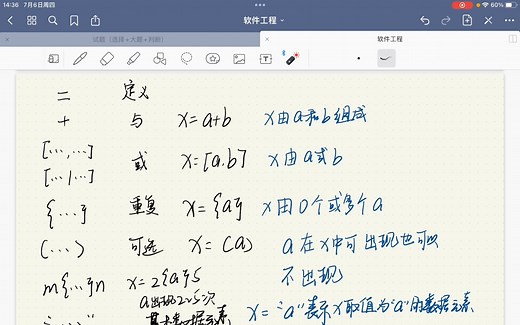 14:36 7月6日周四
60%
软件工程
试题（选择+大题+判断）
软件工程
= 定义
+ 与 x=a+b x由a和b组成
[…,…]
[…|…] 或 x=[a,b] x由a或b
{…} 重复 x={a} x由0个或多个a
(…) 可选 x=(a) a在x中可出现也可以
不出现
m{…}n x=2{a}5
a出现2~5次
"……" 基本数据元素 x="a"表示x取值为"a"的数据元素